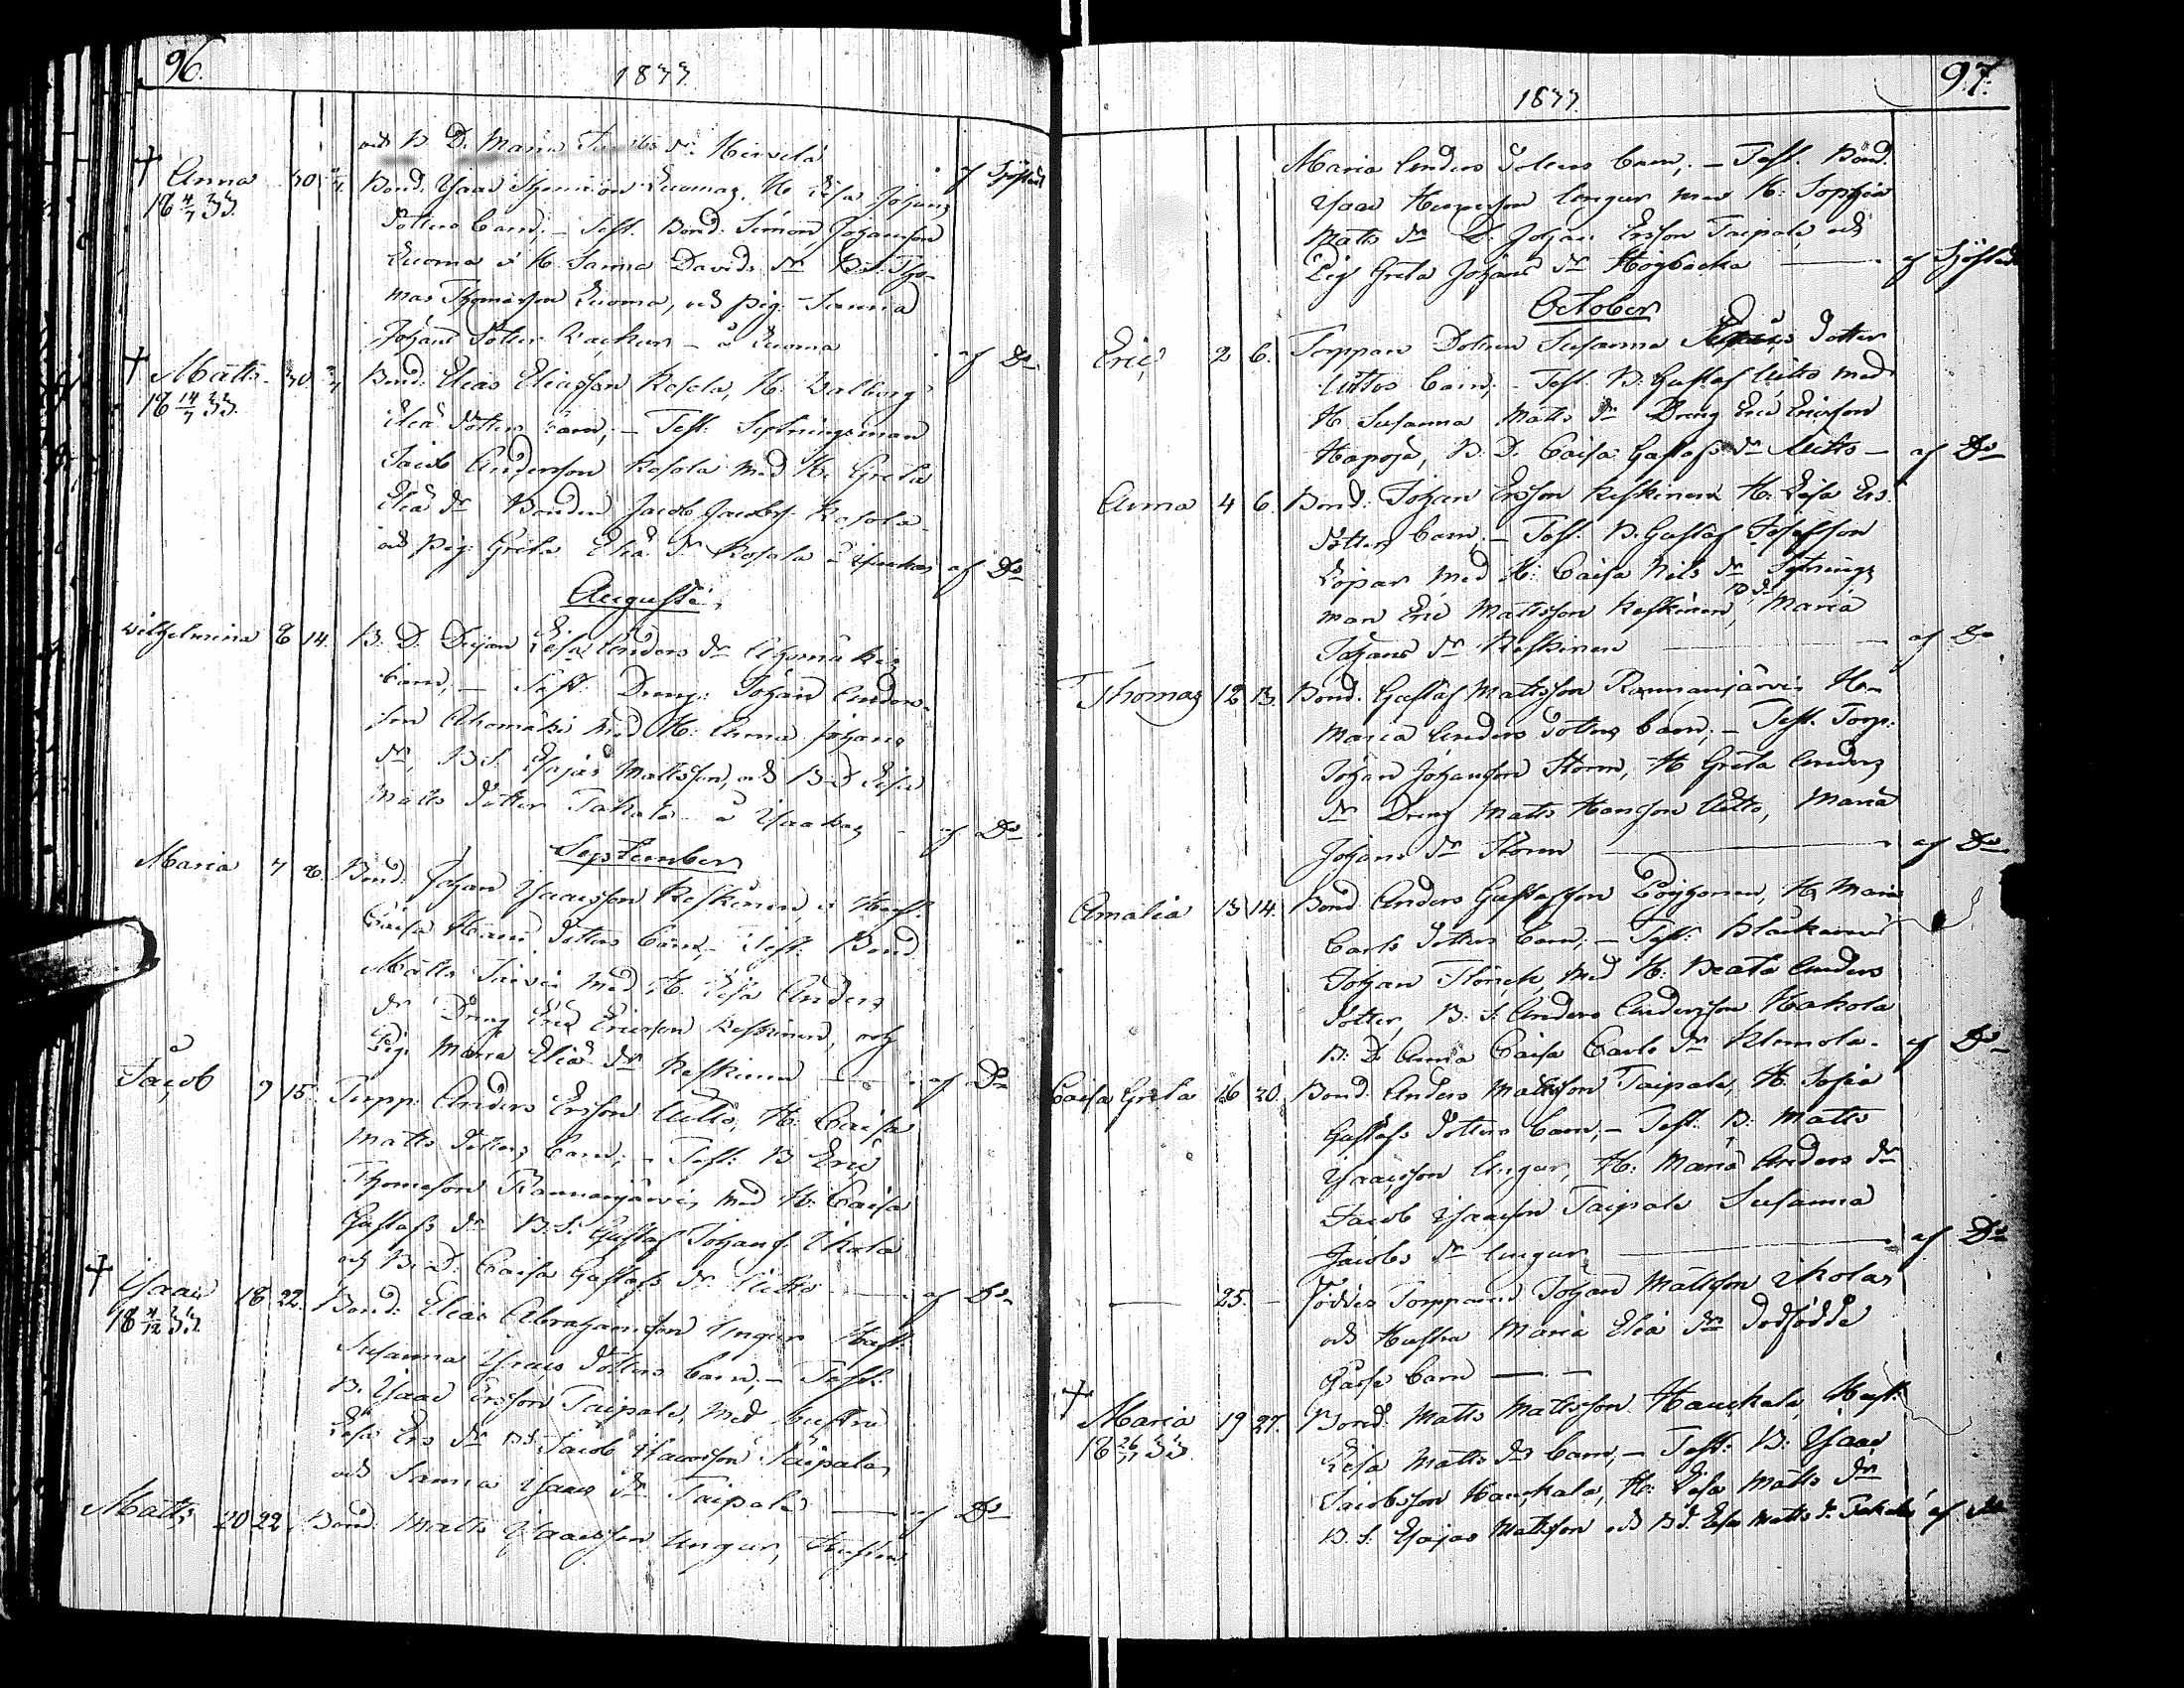 96.
1833.
och B. D. Maria Hirvelä
† Anna 30 Bond. Isaac Thomasson Luoma, H. Lisa Johans af Sjöstad
18 4/7 33. dotters barn; – Test. Bond. Simon Johansson
Luoma o H. Sanna Davids dr B. S. Tho-
mas Thomasson Luoma, och pig. Sanna
Johans dotter – a Luoma af Do
† Matts 30 Bond. Elias Eliasson Kosola, H. Walborg
18 14/7 33. Eliæ dotters barn; – Test. Sextningsman
Jacob Andersson Kosola med H. Greta
Eliæ dr Bonden Jacob Jacobs. Kosola
och pig. Greta Eliæ dr Kosola af Do
Augusti.
Wilhelmina 8 14. B. D. Lisa Anders dr Ahomäki
barn; – Test. Dreng. Johan Anders-
son Ahomäki med H. Anna Johans
dr, B. S. Esajas Mattsson, och B. D. Lisa
Matts dotter Takala af Do
September
Maria 7 8. Bond. Johan Isaacsson Keskinen, o Hust.
Caisa Hans dotters barn; – Test. Bond
Matts Järvi med H. Lisa Anders
dr Dreng Eric Ericsson Keskinen, och
Pig. Maria Eliæ dr Keskinen af Do
Jacob 9 15. Torpp. Anders Ersson Ûitto, H. Caisa
Matts dotters barn; – Test. B Eric
Thomasson Rannanjärvi, med H. Caisa
Gustafs dr B. S. Gustaf Johans. Ikola
och B. D. Caisa Gustafs dr Uitto af Do
† Isaac 18 22. Bond. Elias Abrahamsson Ungur Hust.
18 4/12 33. Susanna Isaacs dotters barn; – Test.
B. Isaac Ersson Taipale, med hustru
Lisa Ers dr B. S. Jacob Isaacsson Taipale,
och Sanna Isaacs dr Taipale af Do
Matts 20 22. Bond Matts Isaacsson Ungur, Hustru
97.
1833.
Maria Anders doters barn; – Test. Bond.
Isaac Ungur med H. Sophia
Matts dr D. Johan Ersson Taipale, och
Pig Greta Johans dr Högbacka af Sjöstad
October
Eric 2 6. Torppare Dottren Susanna dotter
Uitos barn; – Test. B. Gustaf Uitto med
H. Susanna Matts dr Dreng Eric Ericsson
Hapoja, B. D. Caisa Gustafs dr Uitto – af Do
Anna 4 6. Bond. Johan Ersson Keskinen H. Lisa Ers
dotters barn; – Test. B. Gustaf Josefsson
Lopar, med H. Caisa Nils dr Sextnings
man Eric Mattsson Keskinen, B. D. Maria
Johans dr Keskinen af Do
Thomas 12 13. Bond. Gustaf Mattsson Rannanjärvi H.
Maria Anders dotters barn; – Test. Torp.
Johan Johansson Storm, H Greta Anders
dr Dreng Matts Hansson Uitto, Maria
Johans dr Storm af Do
Amalia 13 14. Bond Anders Gustafsson Pöyhönen, H. Maria
Carls dotters barn; – Test. Bläckaren
Johan Florich, med H. Beata Anders
dotter, B. S. Anders Andersson Hakola
B. D. Anna Caisa Carls dr Klemola. af Do
Caisa Greta 16 20. Bond. Anders Mattsson Taipale, H. Sofia
Gustafs dotters barn; – Test. B. Matts
Isaacsson Ungur, H. Maria Anders dr
Jacob Isaacsson Taipale Susanna
Jacobs dr Ungur af Do
— 25. — Föddes Torpparen Johan Mattsson Ikolas
och Hustru Maria Eliæ dr dödfödde
Gosse barn —
† Maria 19 27. Bond. Matts Mattsson Hauckala, Hust.
18 26/ 33. Lisa Matts drs barn; – Test. B. Isaac
Jacobsson Hauckala, H. Lisa Matts dr
B. S. Esajas Mattsson och B. d. Lisa Matts d. Takala af Do